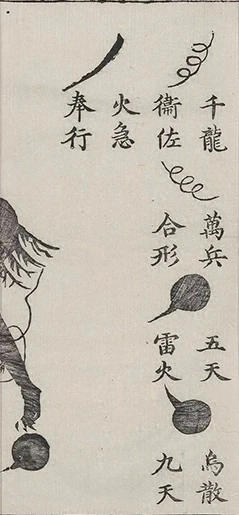 千龍萬兵五天烏散
衛佐合形雷火九天
火急
奉行